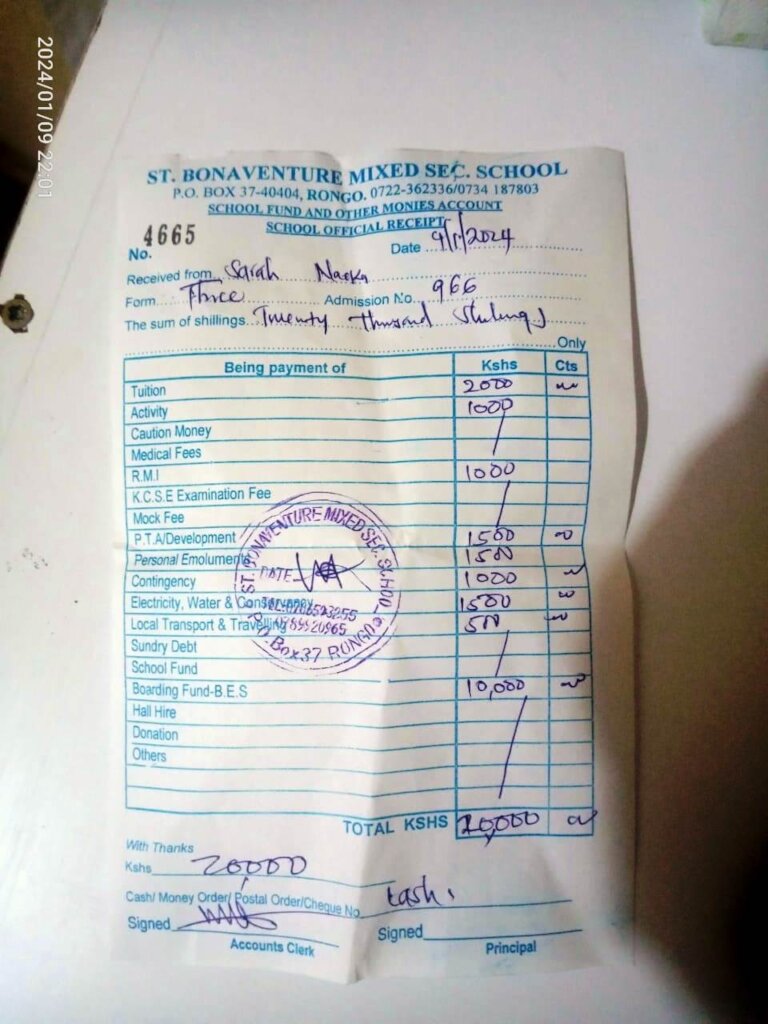 2024/01/09 22:01
ST. BONAVENTURE MIXED SEC. SCHOOL
P.O. BOX 37-40404, RONGO. 0722-362336/0734 187803
SCHOOL FUND AND OTHER MONIES ACCOUNT
SCHOOL OFFICIAL RECEIPT
No. 4665 Date 9/1/2024
Received from Sarah
Form Three Admission No. 966
The sum of shillings Twenty Thousand Shillings
Only
Being payment of Kshs Cts
Tuition 2000
Activity 1000
Caution Money
Medical Fees
R.M.I 1000
K.C.S.E Examination Fee
Mock Fee
P.T.A/Development 1500
Personal Emolument 1500
Contingency 1000
Electricity, Water & Conservancy 1500
Local Transport & Travelling 500
Sundry Debt
School Fund
Boarding Fund-B.E.S 10,000
Hall Hire
Donation
Others
TOTAL KSHS 20,000
ST. BONAVENTURE MIXED SEC. SCHOOL
DATE
P.O. Box 37 RONGO
With Thanks
Kshs 20000
Cash/ Money Order/ Postal Order/Cheque No. Cash.
Signed Signed
Accounts Clerk Principal